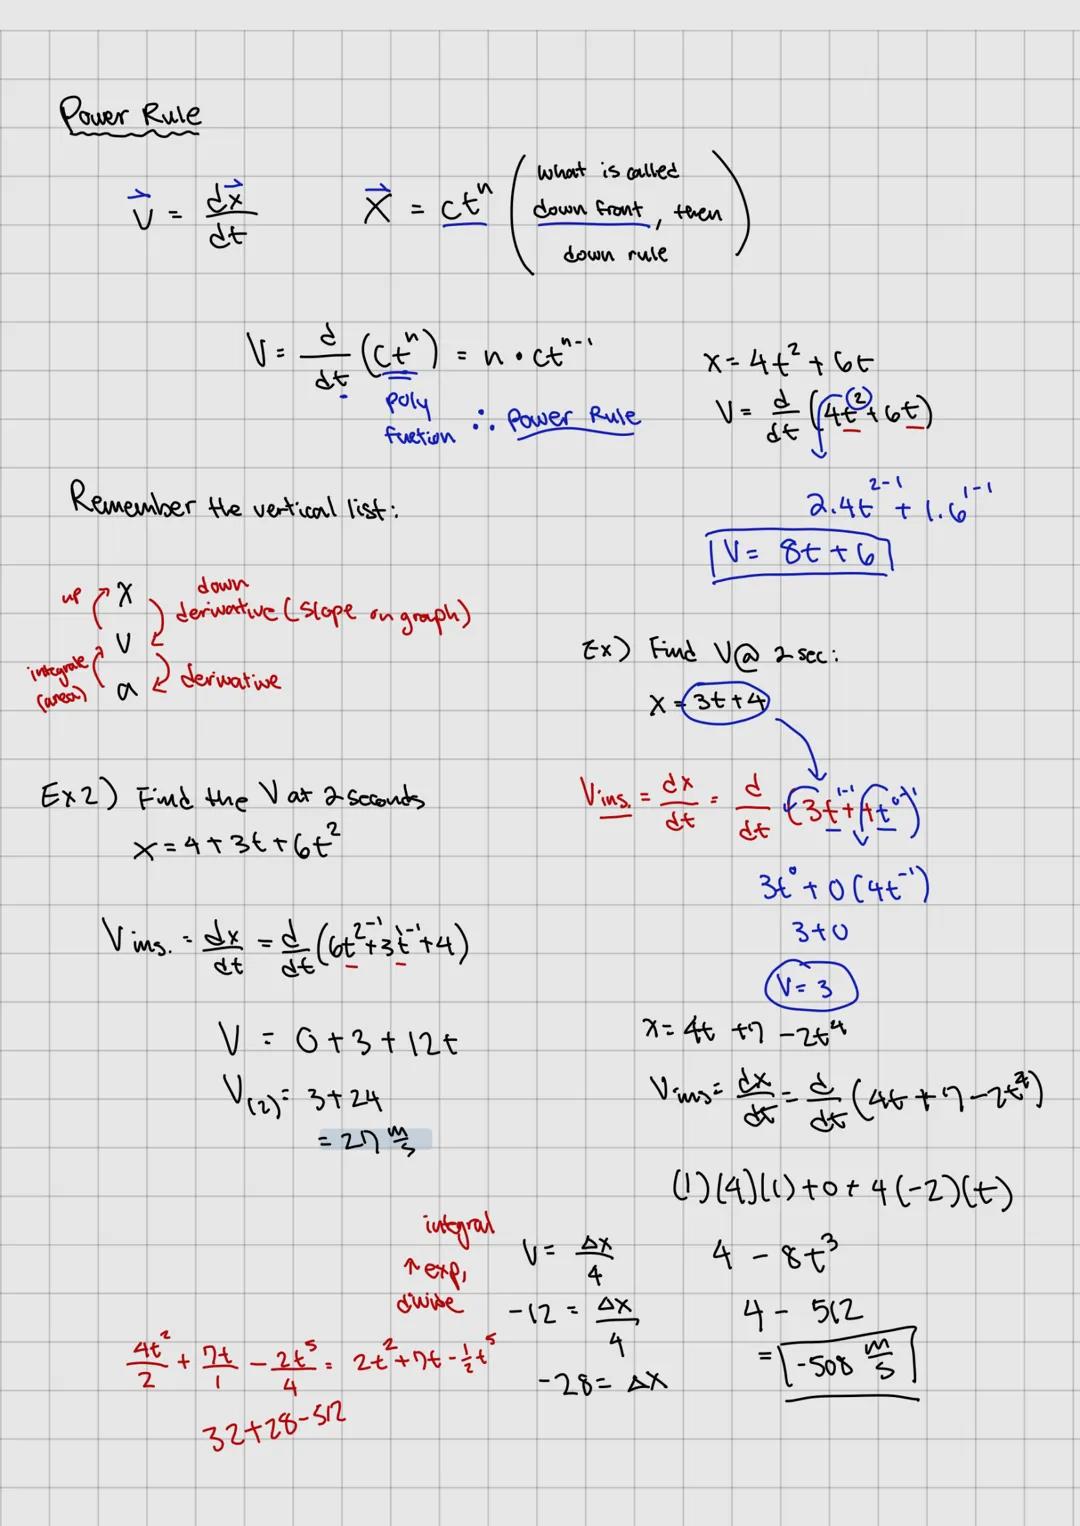 Power Rule
v⃗ = dx⃗/dt
x⃗ = ctⁿ (what is called down front, then down rule)
V = d/dt (ctⁿ) = n • ctⁿ⁻¹
poly fuction ∴ Power Rule
x = 4t² + 6t
V = d/dt (4t² + 6t)
2.4t²⁻¹ + 1.6¹⁻¹
V = 8t + 6
Remember the vertical list:
up
x
v
a
down
derivative (slope on graph)
integrate (area)
derivative
Ex) Find V@ 2 sec:
x = 3t + 4
Vins. = dx/dt = d/dt (3t¹⁻¹ + 4t⁰⁻¹)
3t⁰ + 0(4t⁻¹)
3+0
V = 3
Ex2) Find the V at 2 seconds
x = 4 + 3t + 6t²
Vins. = dx/dt = d/dt (6t²⁻¹ + 3t¹⁻¹ + 4)
V = 0 + 3 + 12t
V(2) = 3 + 24
= 27 m/s
x = 4t + 7 - 2t⁴
Vins = dx/dt = d/dt (4t + 7 - 2t⁴)
(1)(4)(1) + 0 + 4(-2)(t)
4 - 8t³
4 - 512
= -508 m/s
integral
↑ exp,
divide
V = Δx/4
-12 = Δx/4
-28 = Δx
4t²/2 + 7t/1 - 2t⁵/4 = 2t² + 7t - ½t⁵
32+28-512